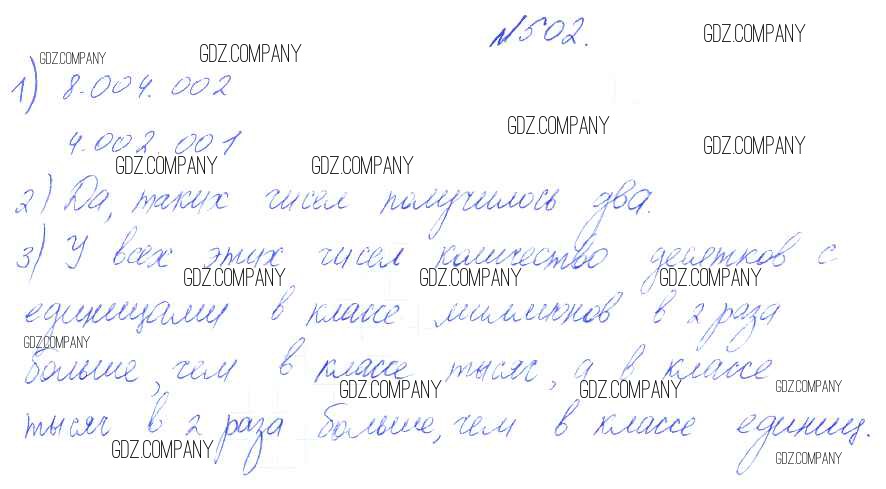 №502.
GDZ.COMPANY GDZ.COMPANY GDZ.COMPANY
1) 8.004.002
GDZ.COMPANY
4.002.001 GDZ.COMPANY
GDZ.COMPANY GDZ.COMPANY
2) Да, таких чисел получилось два.
3) У всех этих чисел количество десятков с
GDZ.COMPANY GDZ.COMPANY GDZ.COMPANY
единицами в классе миллионов в 2 раза
GDZ.COMPANY
больше, чем в классе тысяч, а в классе
GDZ.COMPANY GDZ.COMPANY GDZ.COMPANY
тысяч в 2 раза больше, чем в классе единиц.
GDZ.COMPANY GDZ.COMPANY